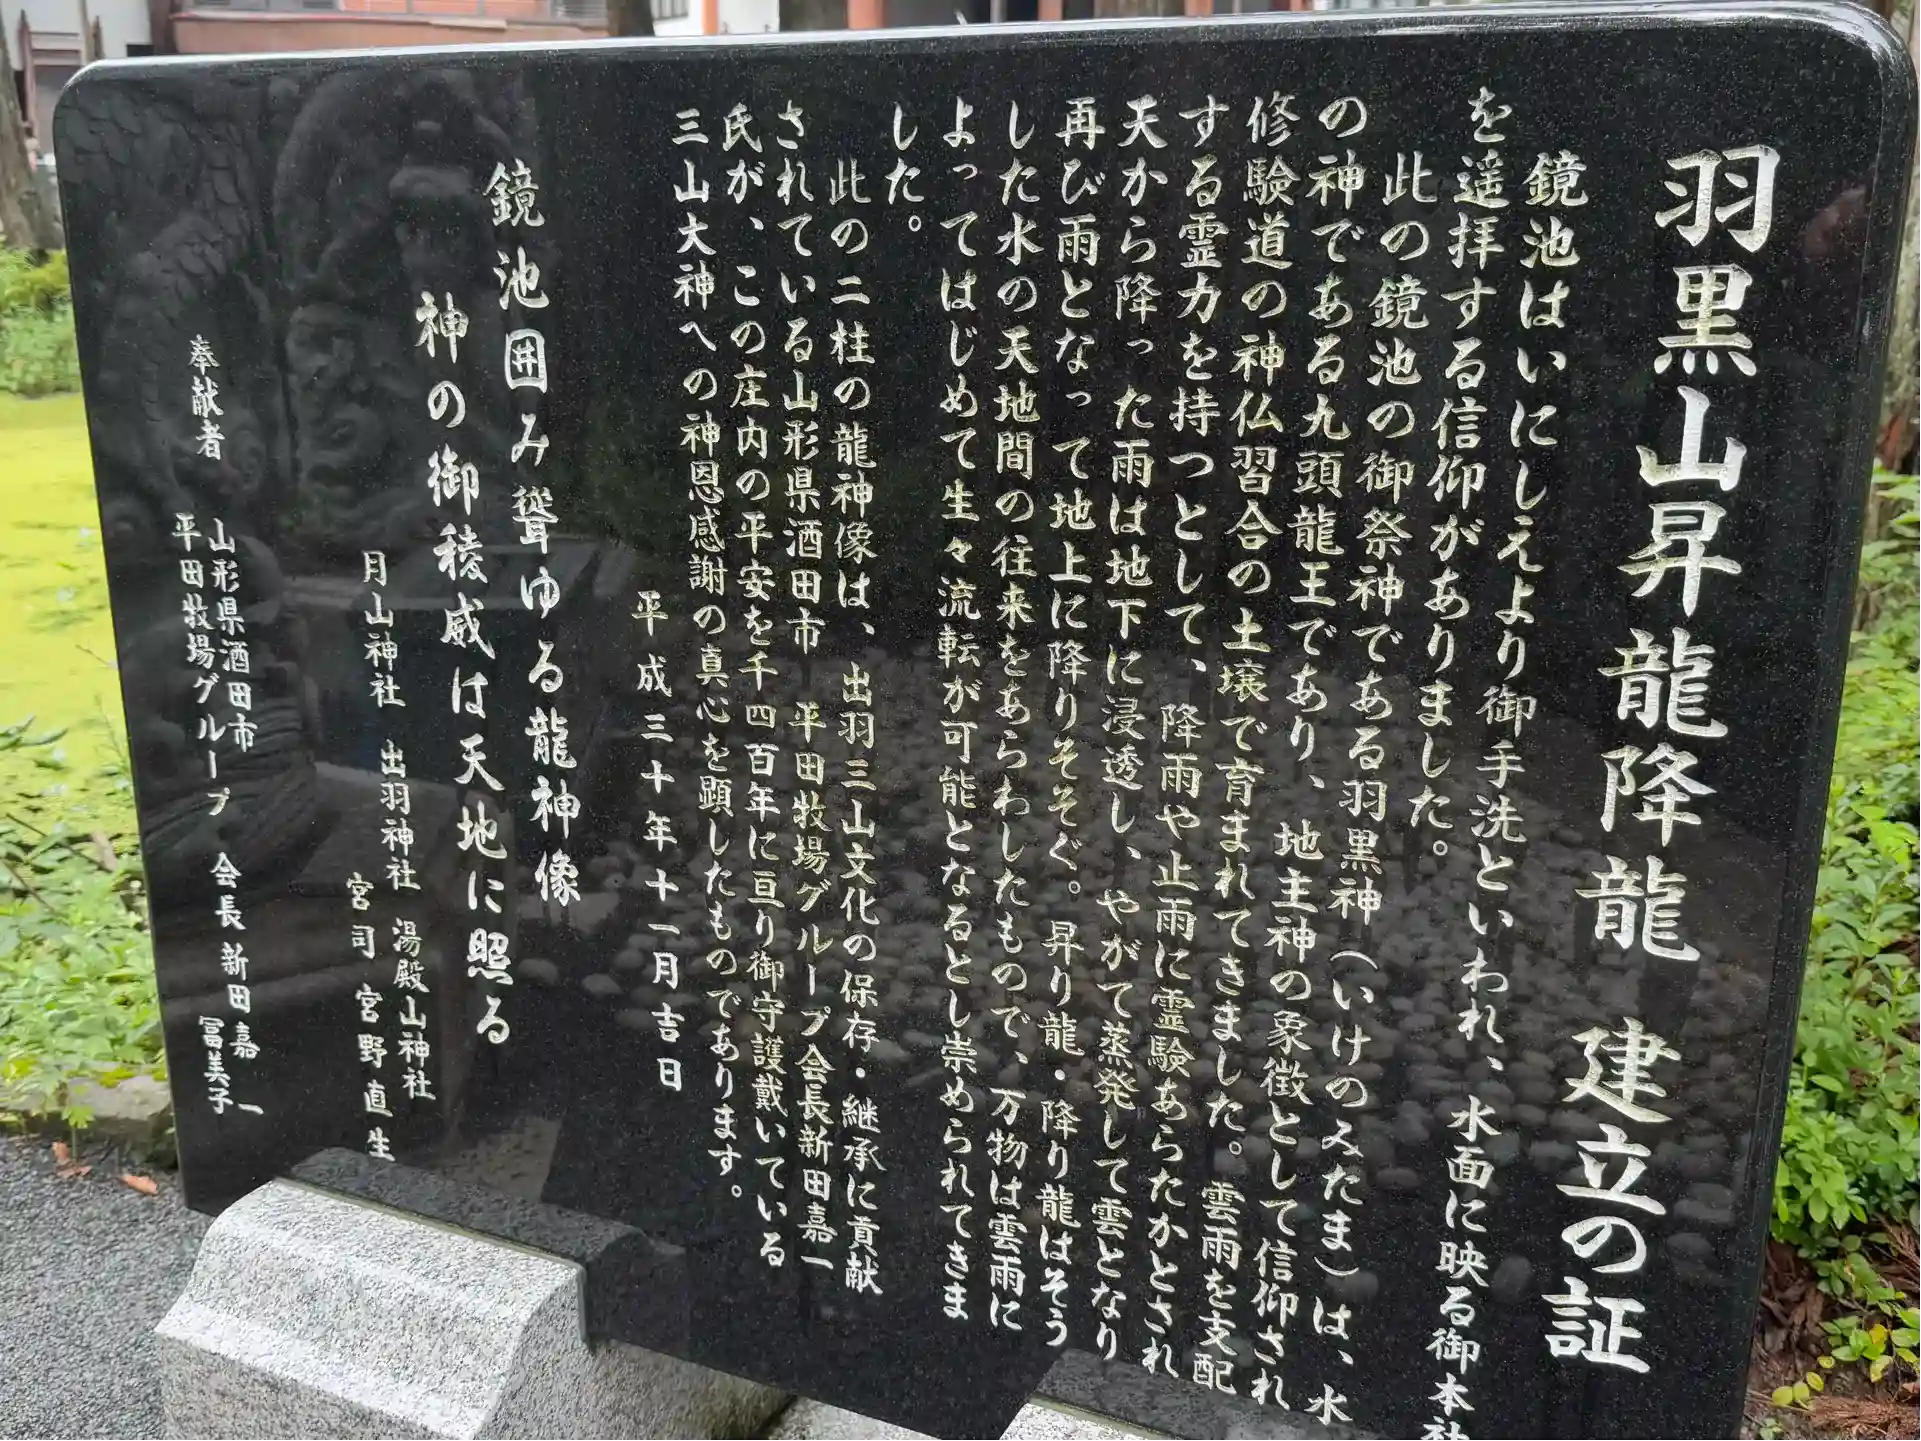 羽黒山昇龍降龍　建立の証
鏡池はいにしえより御手洗といわれ、水面に映る御本社
を遥拝する信仰がありました。
此の鏡池の御祭神である羽黒神（いけのみたま）は、水
の神である九頭龍王であり、地主神の象徴として信仰され
修験道の神仏習合の土壌で育まれてきました。雲雨を支配
する霊力を持つとして、降雨や止雨に霊験あらたかとされ
天から降った雨は地下に浸透し、やがて蒸発して雲となり
再び雨となって地上に降りそそぐ。昇り龍・降り龍はそう
した水の天地間の往来をあらわしたもので、万物は雲雨に
よってはじめて生々流転が可能となるとし崇められてきま
した。
此の二柱の龍神像は、出羽三山文化の保存・継承に貢献
されている山形県酒田市　平田牧場グループ会長新田嘉一
氏が、この庄内の平安を千四百年に亘り御守護戴いている
三山大神への神恩感謝の真心を顕したものであります。
平成三十年十一月吉日
鏡池囲み聳ゆる龍神像
神の御稜威は天地に照る
月山神社　出羽神社　湯殿山神社
宮司　宮野直生
奉献者　山形県酒田市
平田牧場グループ　会長　新田嘉一
冨美子